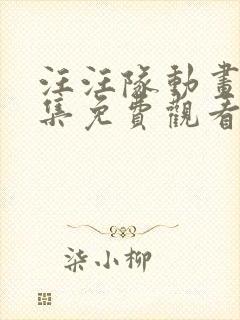 汪汪隊動畫
集免費觀看
柒小柳